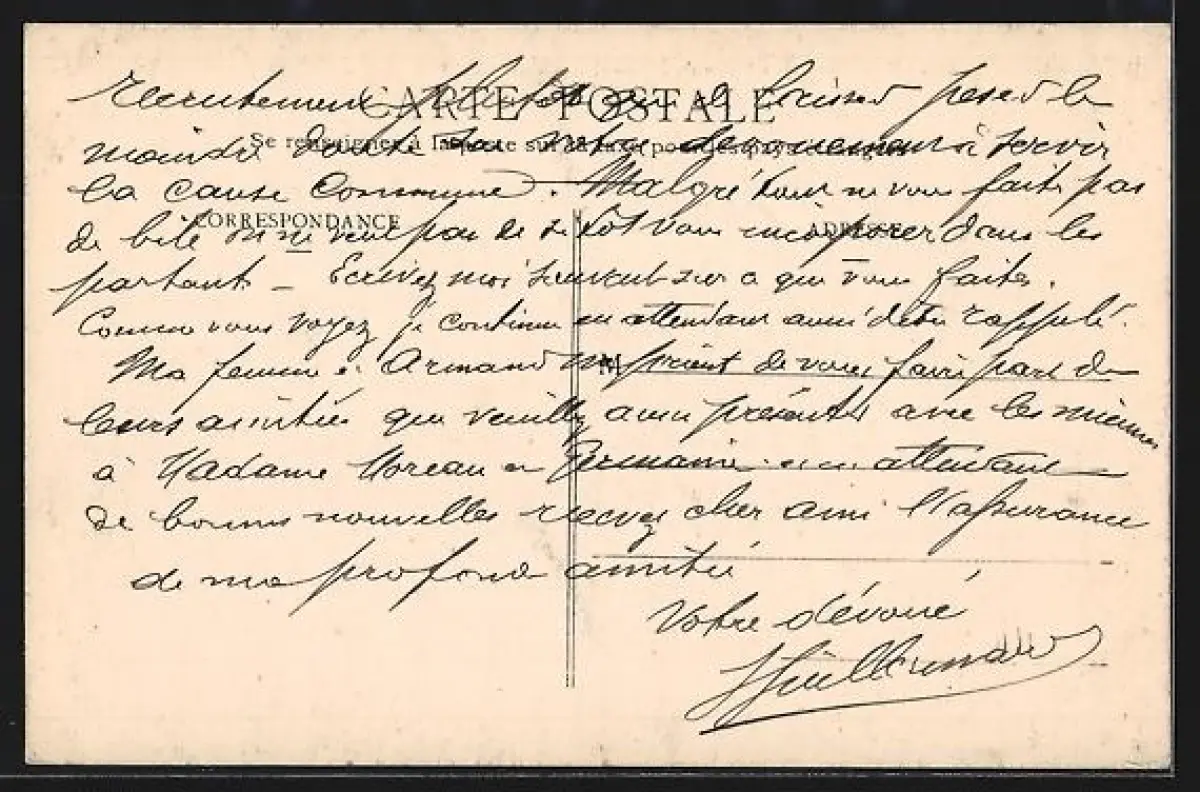 recrutement plutôt que de laisser peser le
CARTE POSTALE
moindre doute sur votre dévouement à servir
Se renseigner à la poste
la cause Commune. Malgré tout ne vous faites pas
CORRESPONDANCE
ADRESSE
de bile on ne veut pas de si tôt vous incorporer dans les
partants - Ecrivez moi souvent sur ce que vous faites.
Comme vous voyez je continue en attendant aussi d'être rappelé.
Ma femme et Armand me prient de vous faire part de
M
leurs amitiés que veuillez aussi présenter avec les miennes
à Madame Moreau et Germaine et en attendant
de bonnes nouvelles recevez cher ami l'assurance
de ma profonde amitié
Votre dévoué